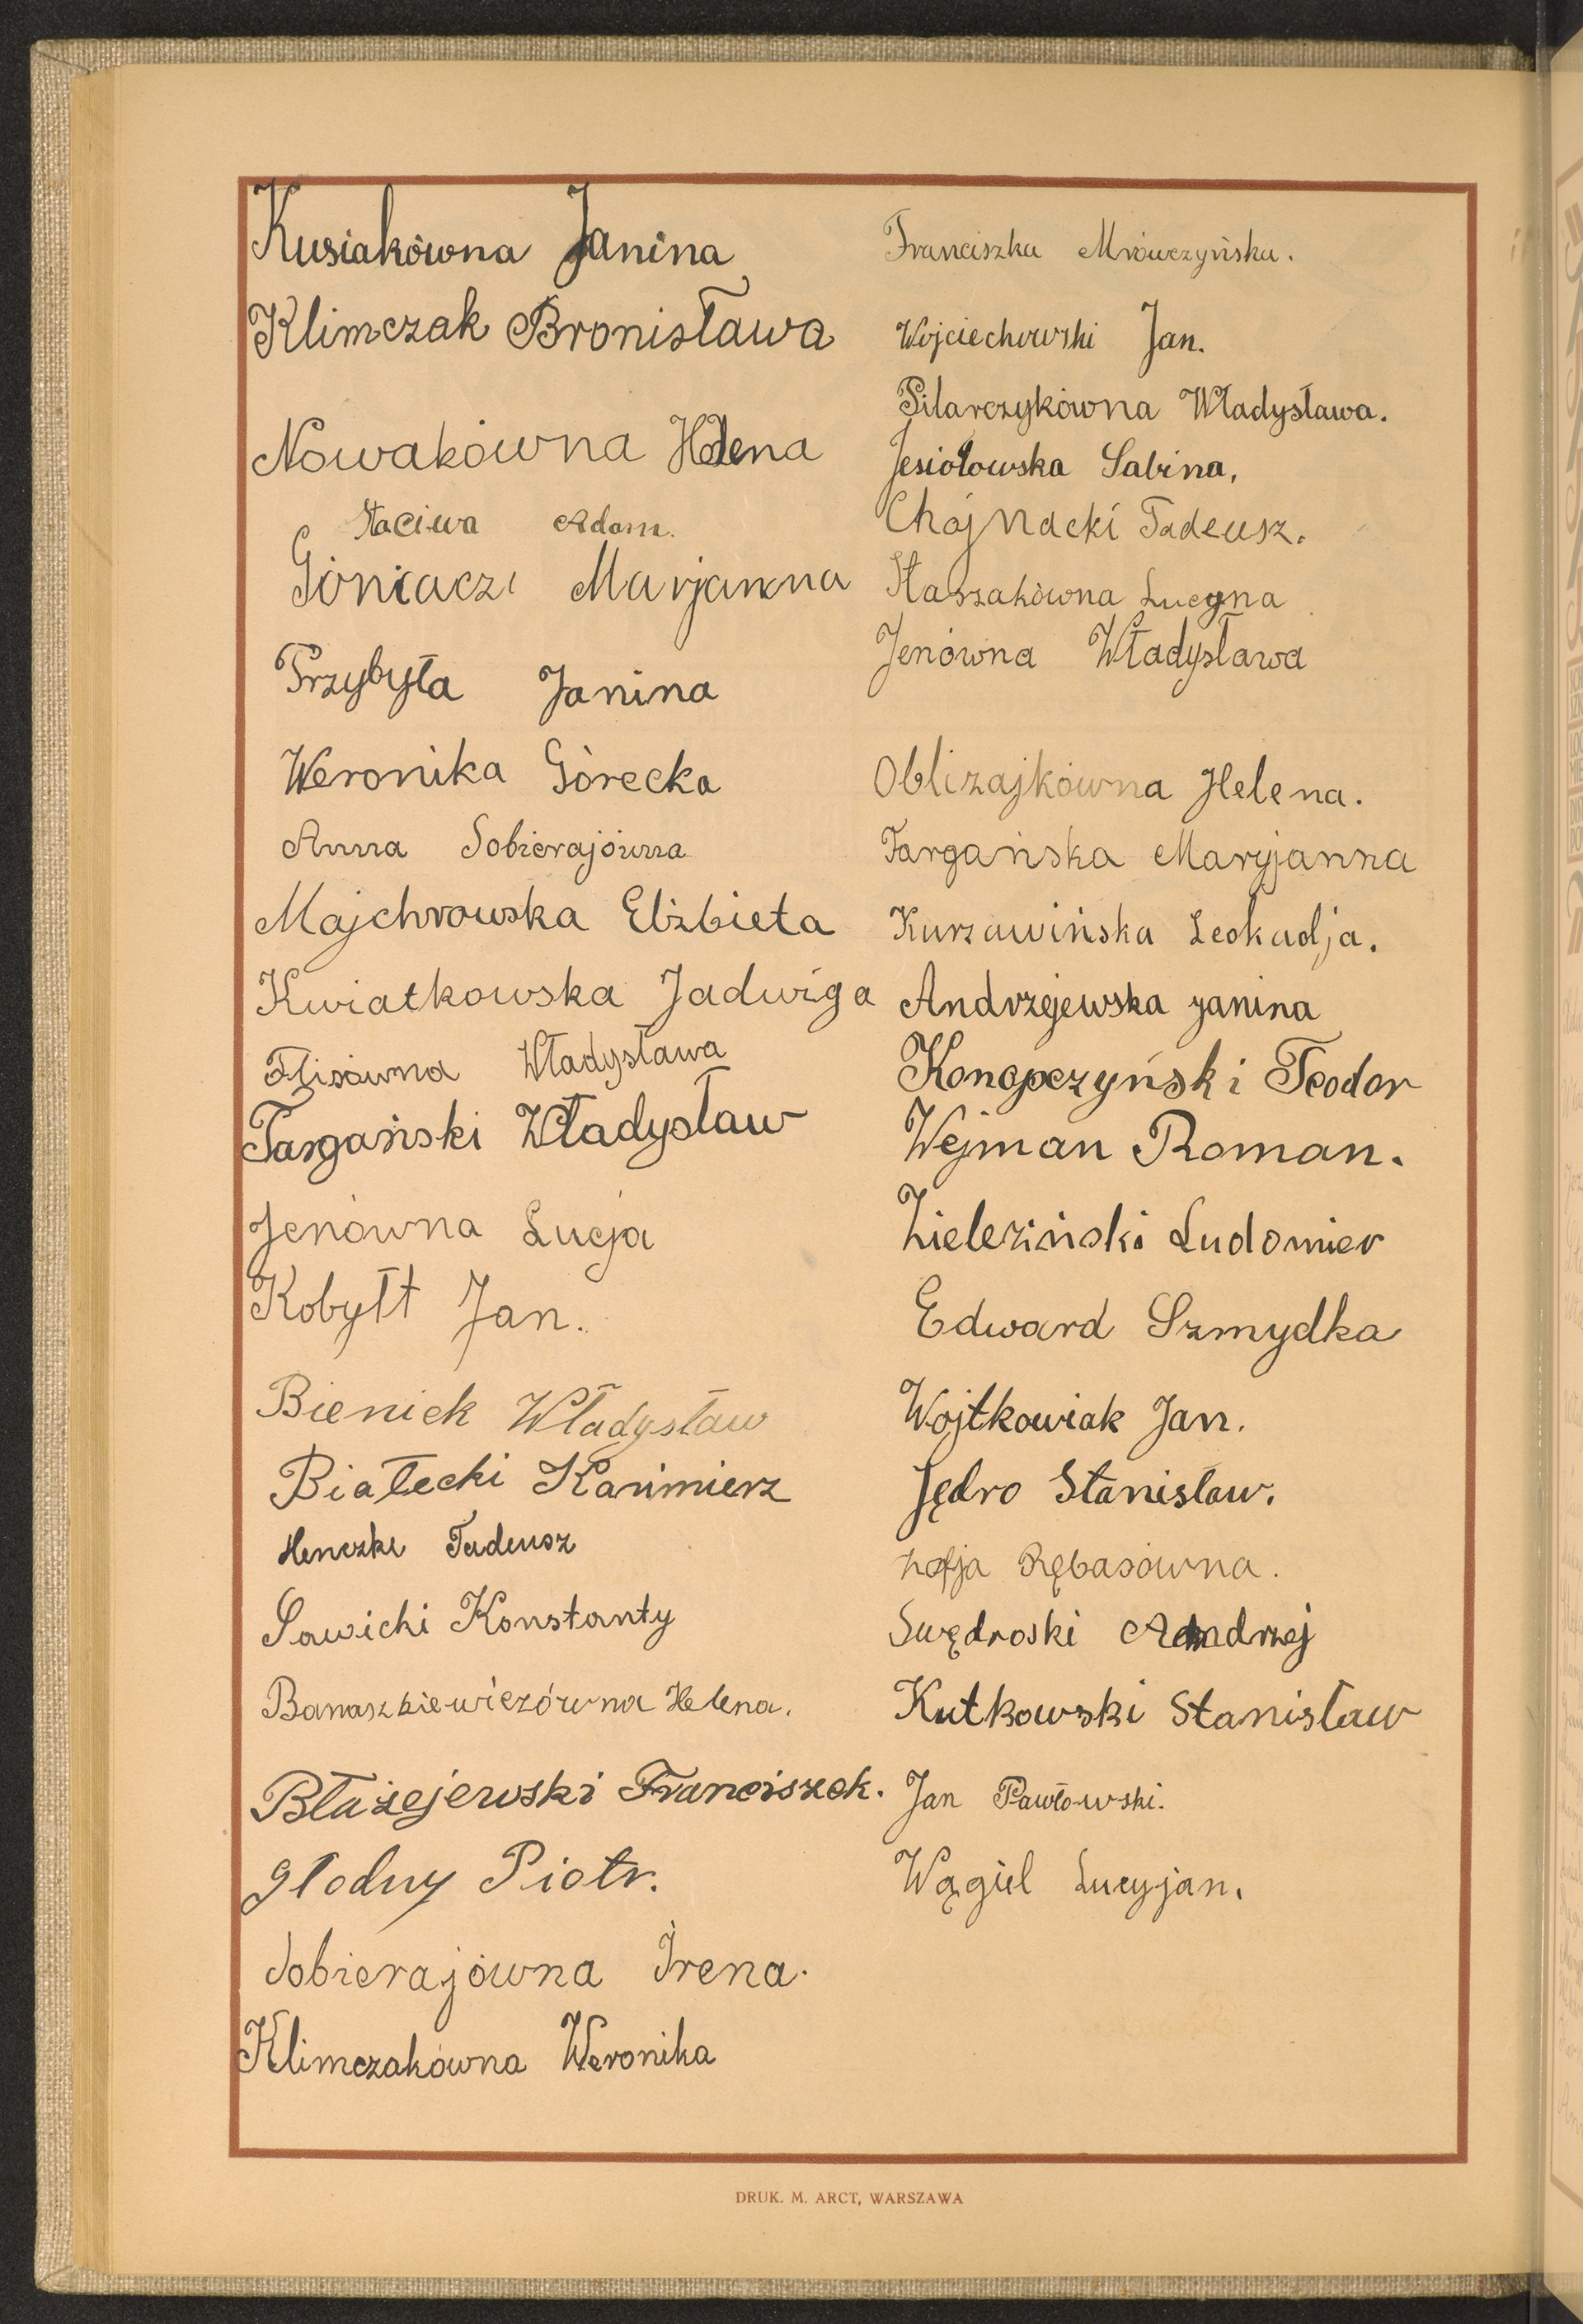 Kusiakówna Janina
Klimczak Bronisława
Nowakówna Helena
Staciwa Adam.
Góniacz Marjanna
Przybyła Janina
Weronika Górecka
Anna Sobierajówna
Majchrowska Elżbieta
Kwiatkowska Jadwiga
Flisówna Władysława
Targański Władysław
Jenówna Łucja
Kobyłt Jan.
Bieniek Władysław
Białecki Kazimierz
Henczke Tadeusz
Sawicki Konstanty
Banaszkiewiczówna Helena.
Błażejewski Franciszek.
Głodny Piotr.
Sobierajówna Irena.
Klimczakówna Weronika
Franciszka Mrówczyńska.
Wojciechowski Jan.
Pilarczykówna Władysława.
Jesiołowska Sabina.
Chojnacki Tadeusz.
Staszakówna Lucyna
Jenówna Władysława
Oblizajkówna Helena.
Targańska Maryjanna
Kurzawińska Leokadja.
Andrzejewska Janina
Konopczyński Teodor
Wejman Roman.
Zieleziński Ludomier
Edward Szmydka
Wojtkowiak Jan.
Jędro Stanisław.
Zofja Rębasówna.
Swędroski Andrzej
Kutkowski Stanisław
Jan Pawłowski.
Wągiel Lucyjan.
DRUK. M. ARCT, WARSZAWA